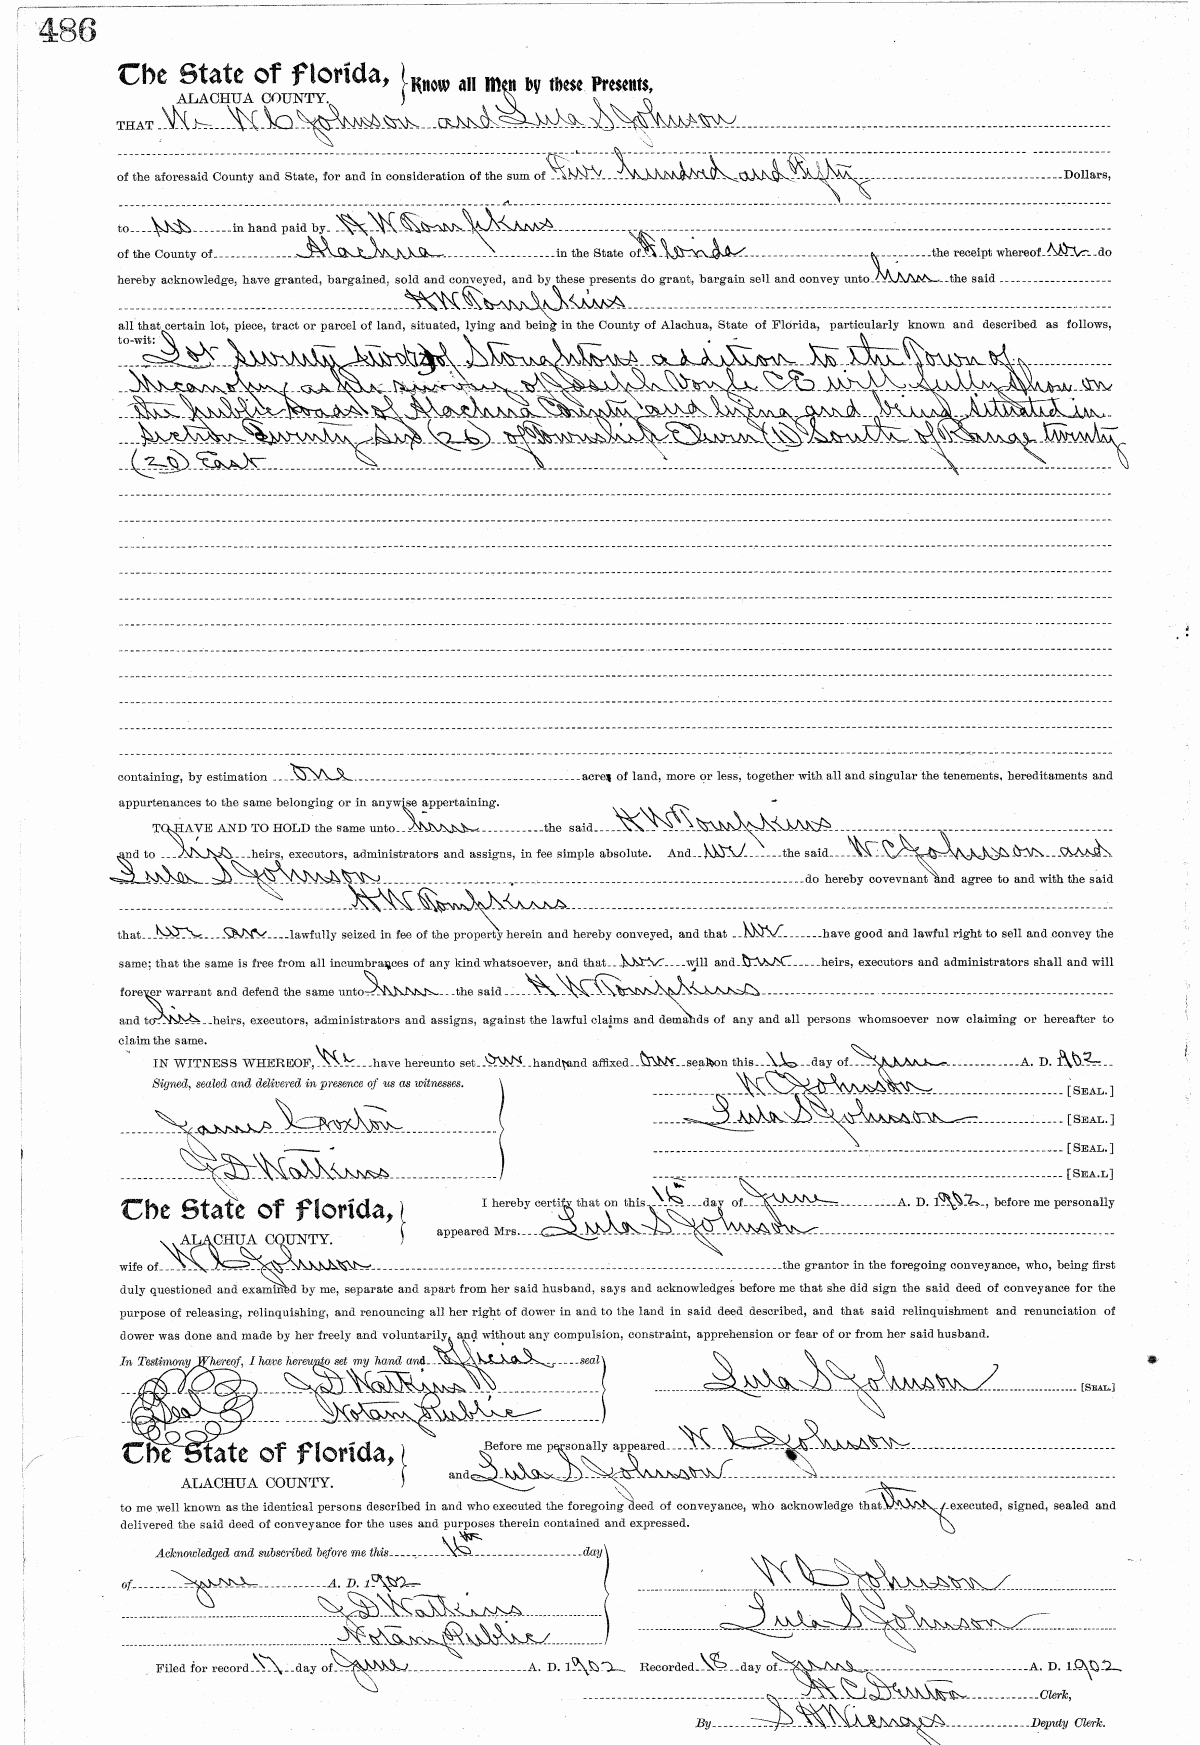 486
The State of Florida,
ALACHUA COUNTY.
Know all Men by these Presents,
THAT We W C Johnson and Lula S Johnson
of the aforesaid County and State, for and in consideration of the sum of Five hundred and Fifty Dollars,
to us in hand paid by H W Tompkins
of the County of Alachua in the State of Florida the receipt whereof we do
hereby acknowledge, have granted, bargained, sold and conveyed, and by these presents do grant, bargain sell and convey unto him the said
H W Tompkins
all that certain lot, piece, tract or parcel of land, situated, lying and being in the County of Alachua, State of Florida, particularly known and described as follows,
to-wit:
Lot Seventy of Stoughtons addition to the Town of
Micanopy as per survey of Joseph C E will fully show on
the public roads of Alachua County and lying and being situated in
Section Twenty Six (26) of Township Eleven (11) South of Range twenty
(20) East
containing, by estimation one acre of land, more or less, together with all and singular the tenements, hereditaments and
appurtenances to the same belonging or in anywise appertaining.
TO HAVE AND TO HOLD the same unto him the said H W Tompkins
and to his heirs, executors, administrators and assigns, in fee simple absolute. And we the said W. C Johnson and
Lula S Johnson do hereby covevnant and agree to and with the said
H W Tompkins
that we are lawfully seized in fee of the property herein and hereby conveyed, and that we have good and lawful right to sell and convey the
same; that the same is free from all incumbrances of any kind whatsoever, and that we will and our heirs, executors and administrators shall and will
forever warrant and defend the same unto him the said H W Tompkins
and to his heirs, executors, administrators and assigns, against the lawful claims and demands of any and all persons whomsoever now claiming or hereafter to
claim the same.
IN WITNESS WHEREOF, We have hereunto set our hands and affixed our seals on this 16 day of June A. D. 1902
Signed, sealed and delivered in presence of us as witnesses.
W C Johnson [SEAL.]
Lula S Johnson [SEAL.]
James Croxton
[SEAL.]
J D Watkins [SEA.L]
The State of Florida,
ALACHUA COUNTY.
I hereby certify that on this 16th day of June A. D. 1902, before me personally
appeared Mrs. Lula S Johnson
wife of W C Johnson the grantor in the foregoing conveyance, who, being first
duly questioned and examined by me, separate and apart from her said husband, says and acknowledges before me that she did sign the said deed of conveyance for the
purpose of releasing, relinquishing, and renouncing all her right of dower in and to the land in said deed described, and that said relinquishment and renunciation of
dower was done and made by her freely and voluntarily, and without any compulsion, constraint, apprehension or fear of or from her said husband.
In Testimony Whereof, I have hereunto set my hand and official seal
J D Watkins Lula S Johnson [SEAL]
Seal Notary Public
The State of Florida,
ALACHUA COUNTY.
Before me personally appeared W C Johnson
and Lula S Johnson
to me well known as the identical persons described in and who executed the foregoing deed of conveyance, who acknowledge that they executed, signed, sealed and
delivered the said deed of conveyance for the uses and purposes therein contained and expressed.
Acknowledged and subscribed before me this 16th day
of June A. D. 1902 W C Johnson
J D Watkins Lula S Johnson
Notary Public
Filed for record 17 day of June A. D. 1902 Recorded 18 day of June A. D. 1902
H C Denton Clerk,
By S H Wienges Deputy Clerk.